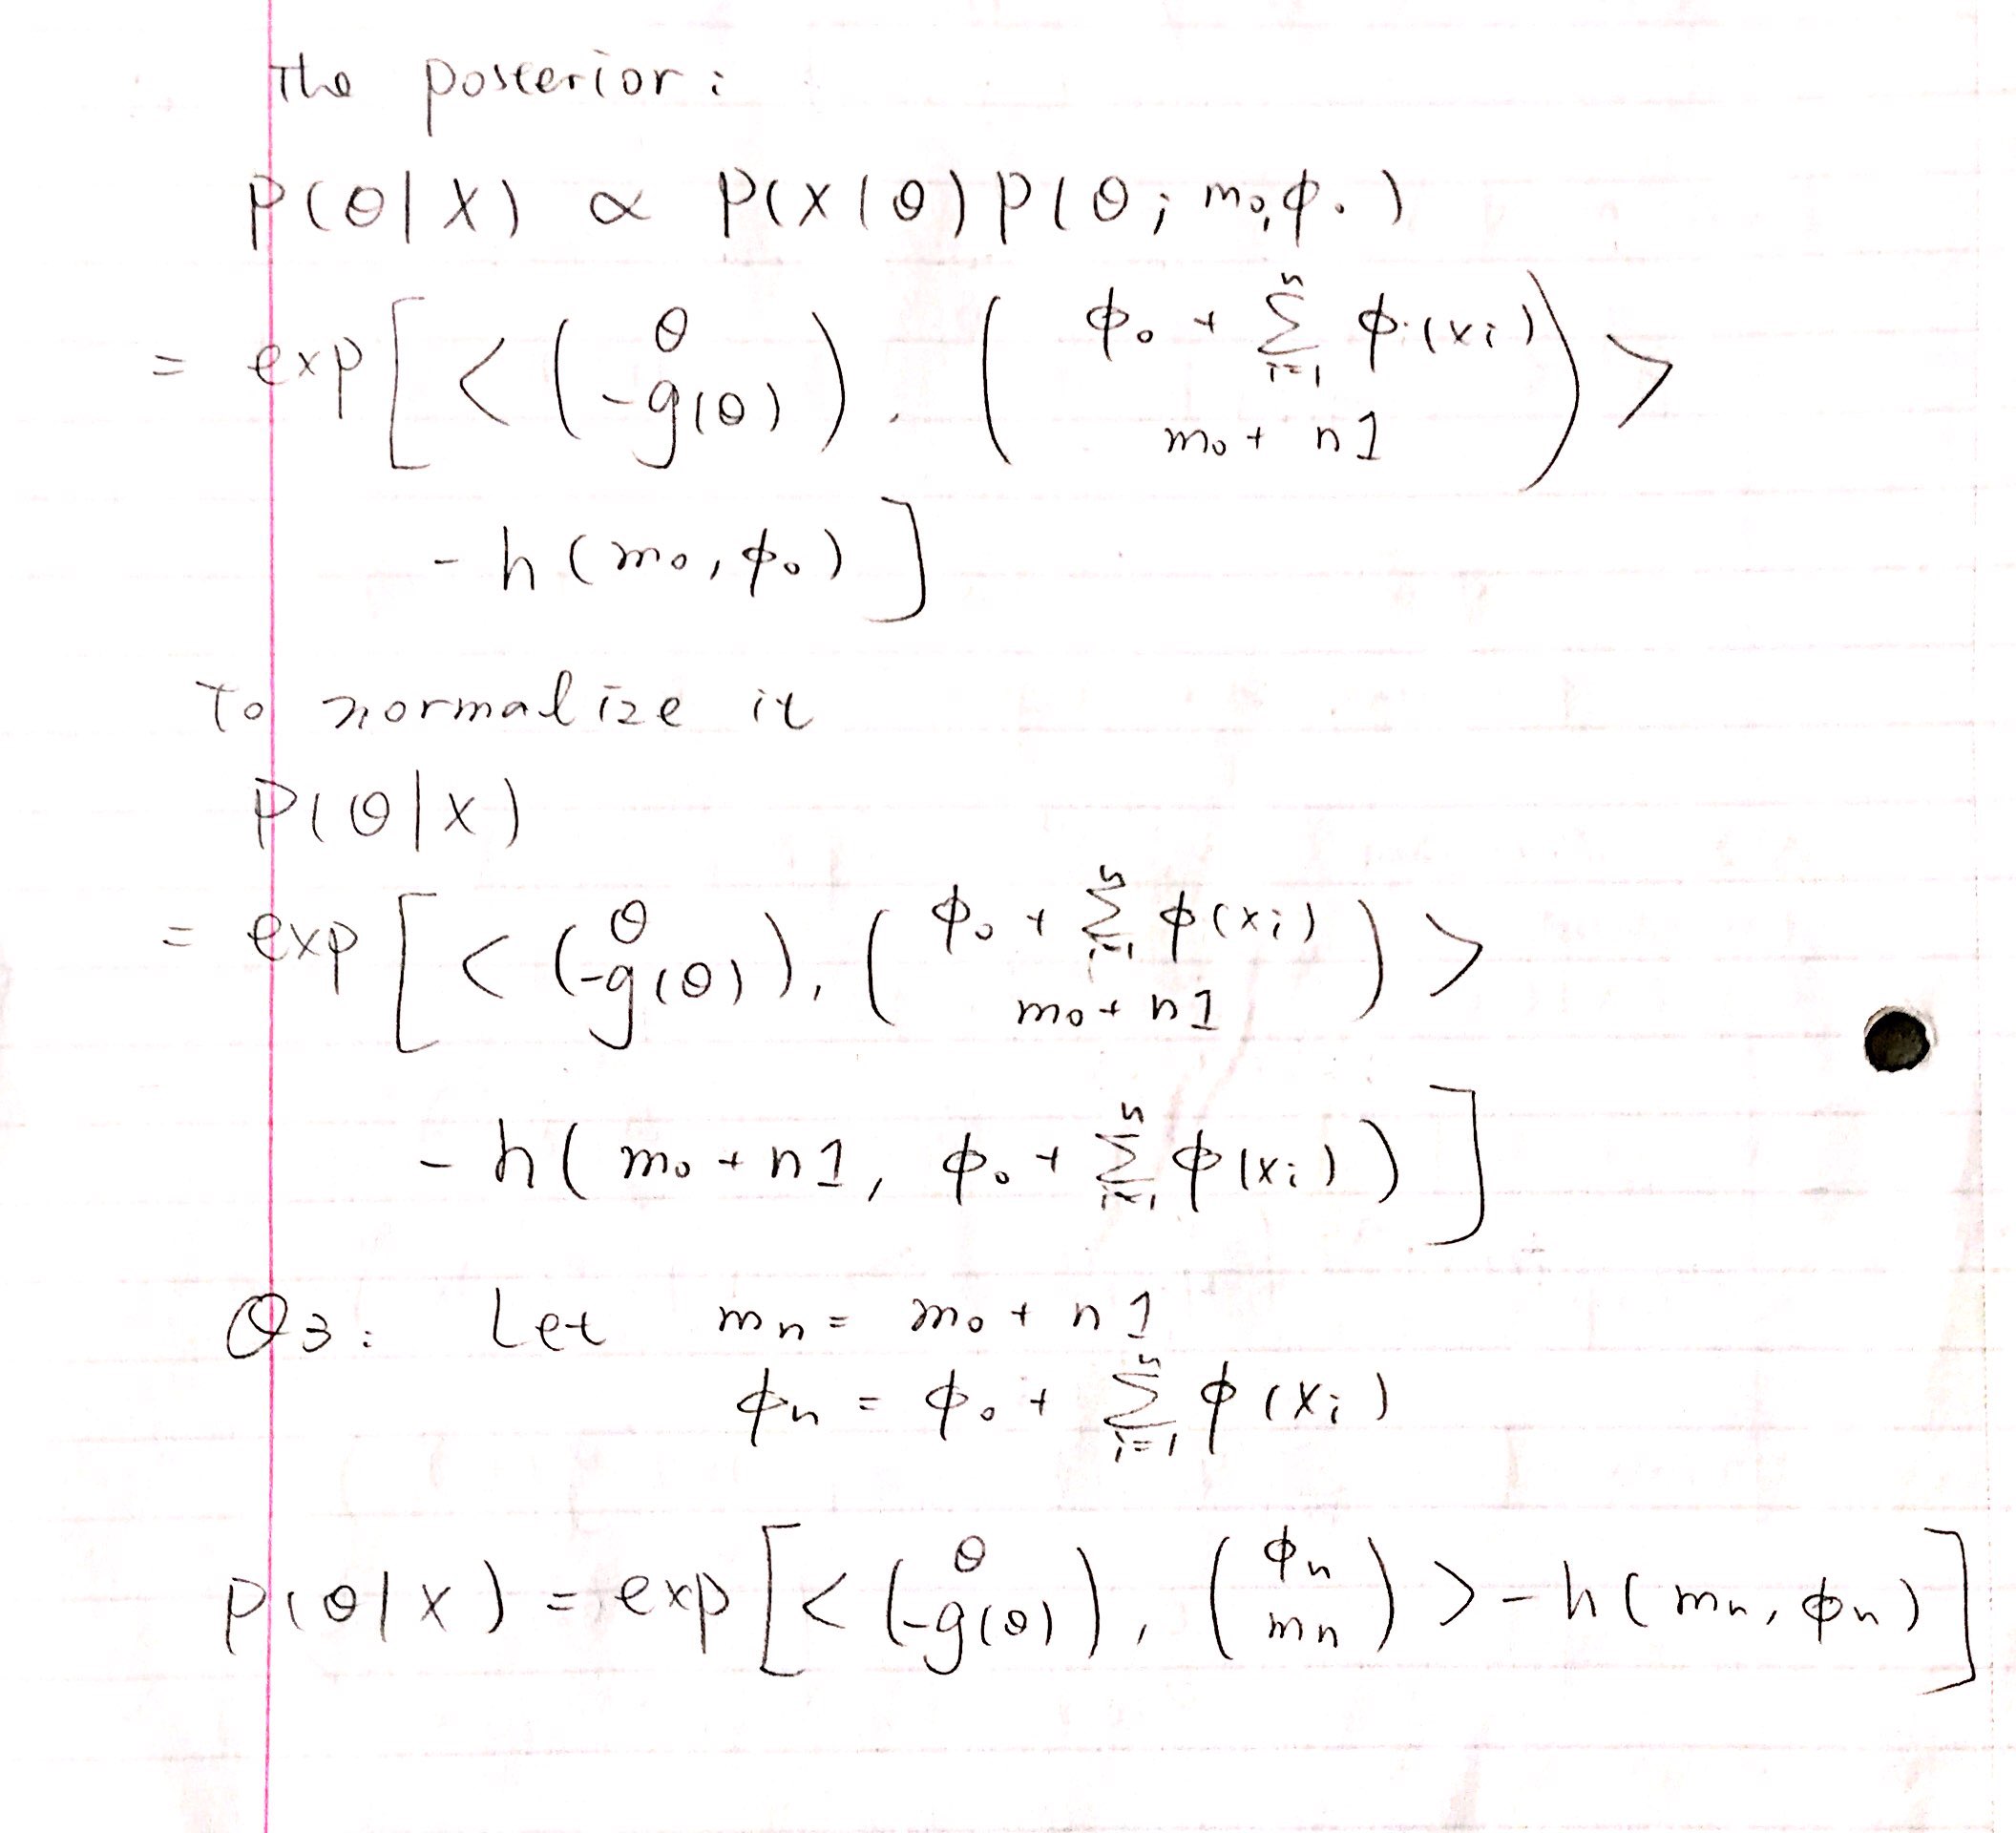 The posterior:
P(θ|X) ∝ P(X|θ)P(θ; m₀,φ₀)
= exp[<(θ -g(θ)), (φ₀ + Σⁿᵢ₌₁ φ(xᵢ) m₀ + n1)>
- h(m₀, φ₀)]
To normalize it
P(θ|X)
= exp[<(θ -g(θ)), (φ₀ + Σⁿᵢ₌₁ φ(xᵢ) m₀ + n1)>
- h(m₀ + n1, φ₀ + Σⁿᵢ₌₁ φ(xᵢ))]
Q3: Let mₙ = m₀ + n1
φₙ = φ₀ + Σⁿᵢ₌₁ φ(Xᵢ)
P(θ|X) = exp[<(θ -g(θ)), (φₙ mₙ)> - h(mₙ, φₙ)]